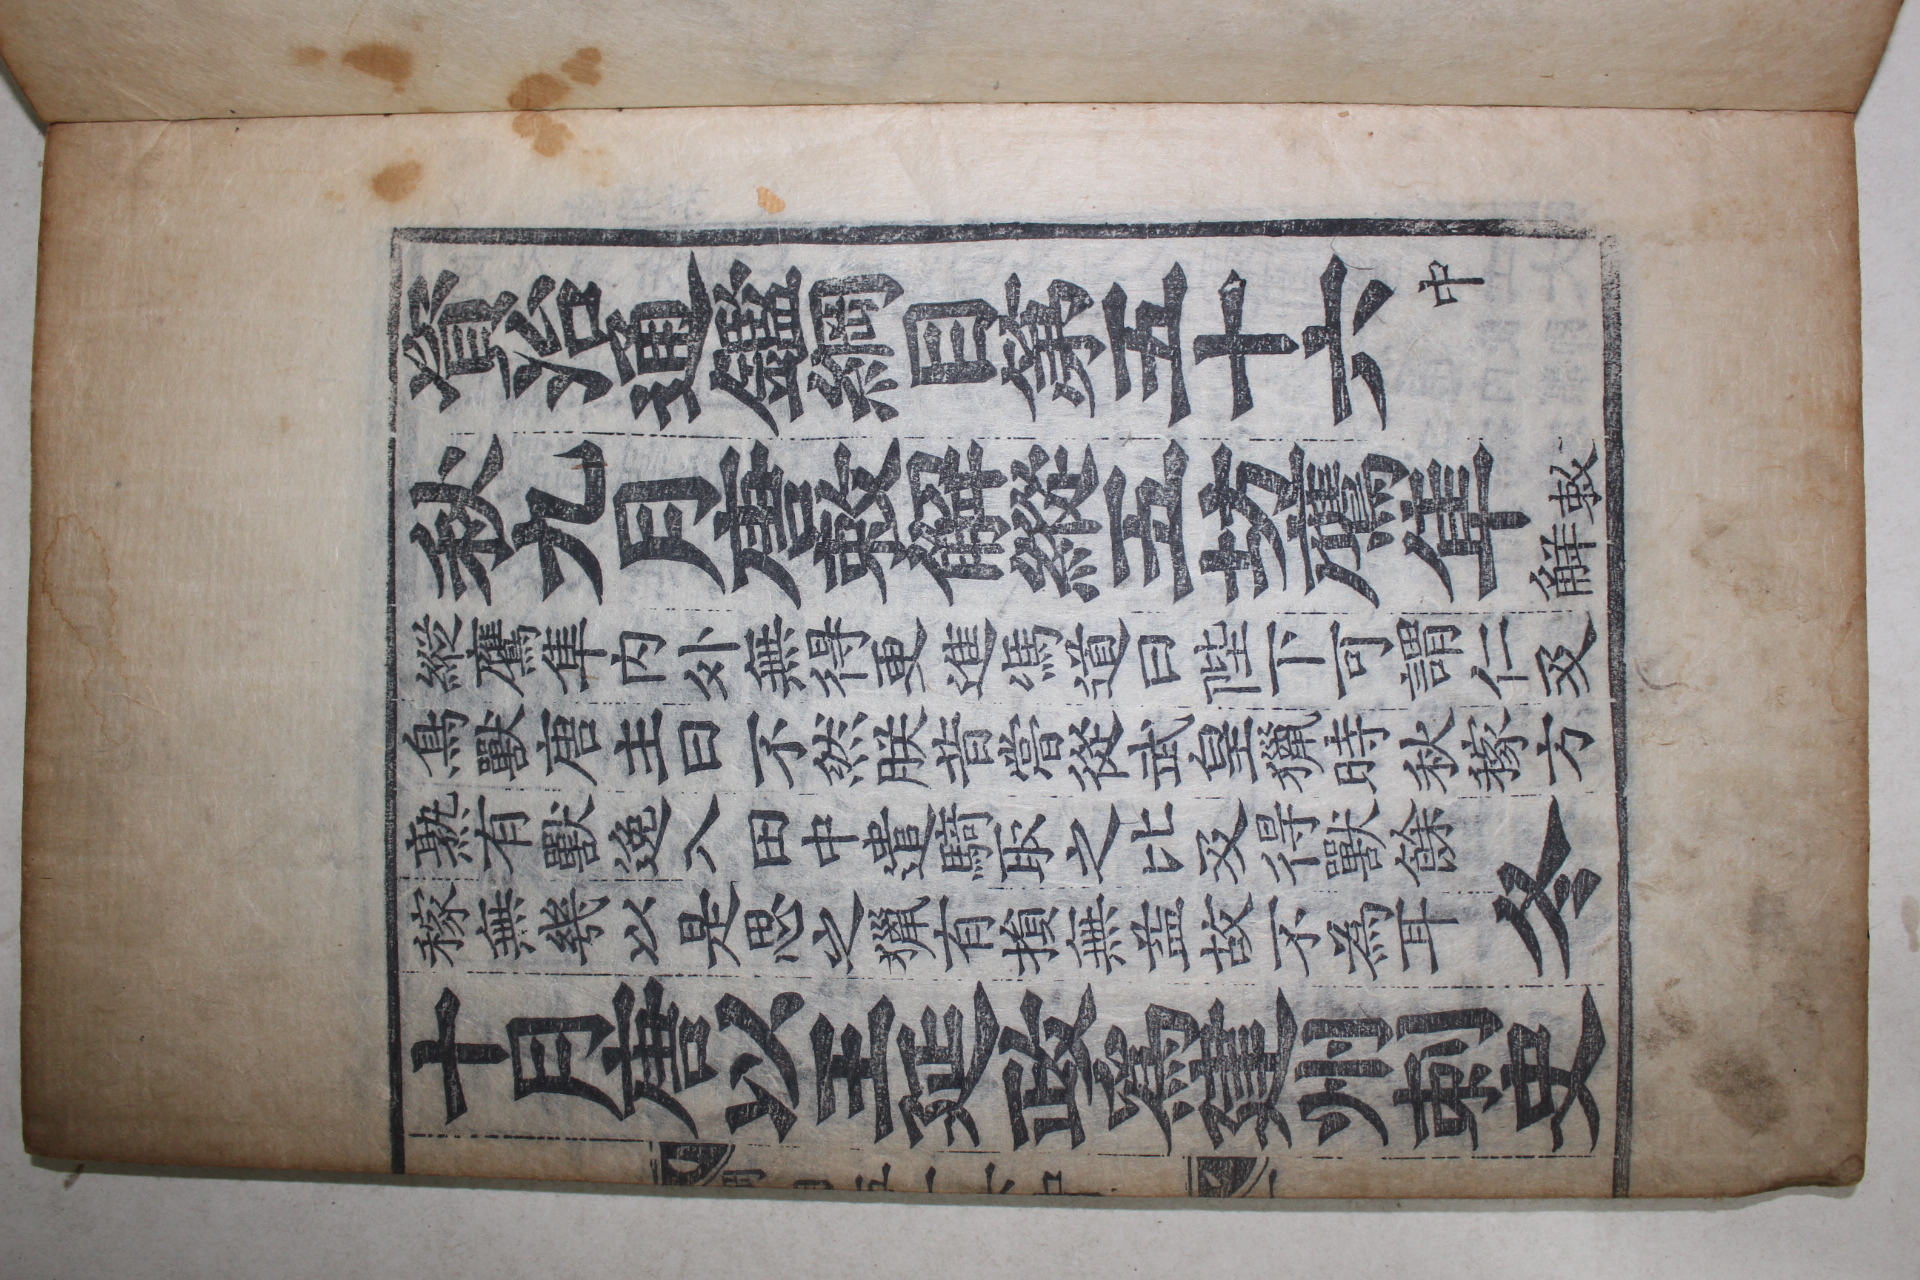 資治通鑑綱目第五十六 中
秋九月唐敕解縱五坊鷹隼 敕解
縱鷹隼内外無得更進馮道曰陛下可謂仁及
鳥獸唐主曰不然朕昔嘗從武皇獵時秋稼方
熟有獸逸入田中遣騎取之比及得獸餘
稼無幾以是思之獵有損無益故不為耳
冬
十月唐以王延政爲建州刺史
綱目五十六中
一